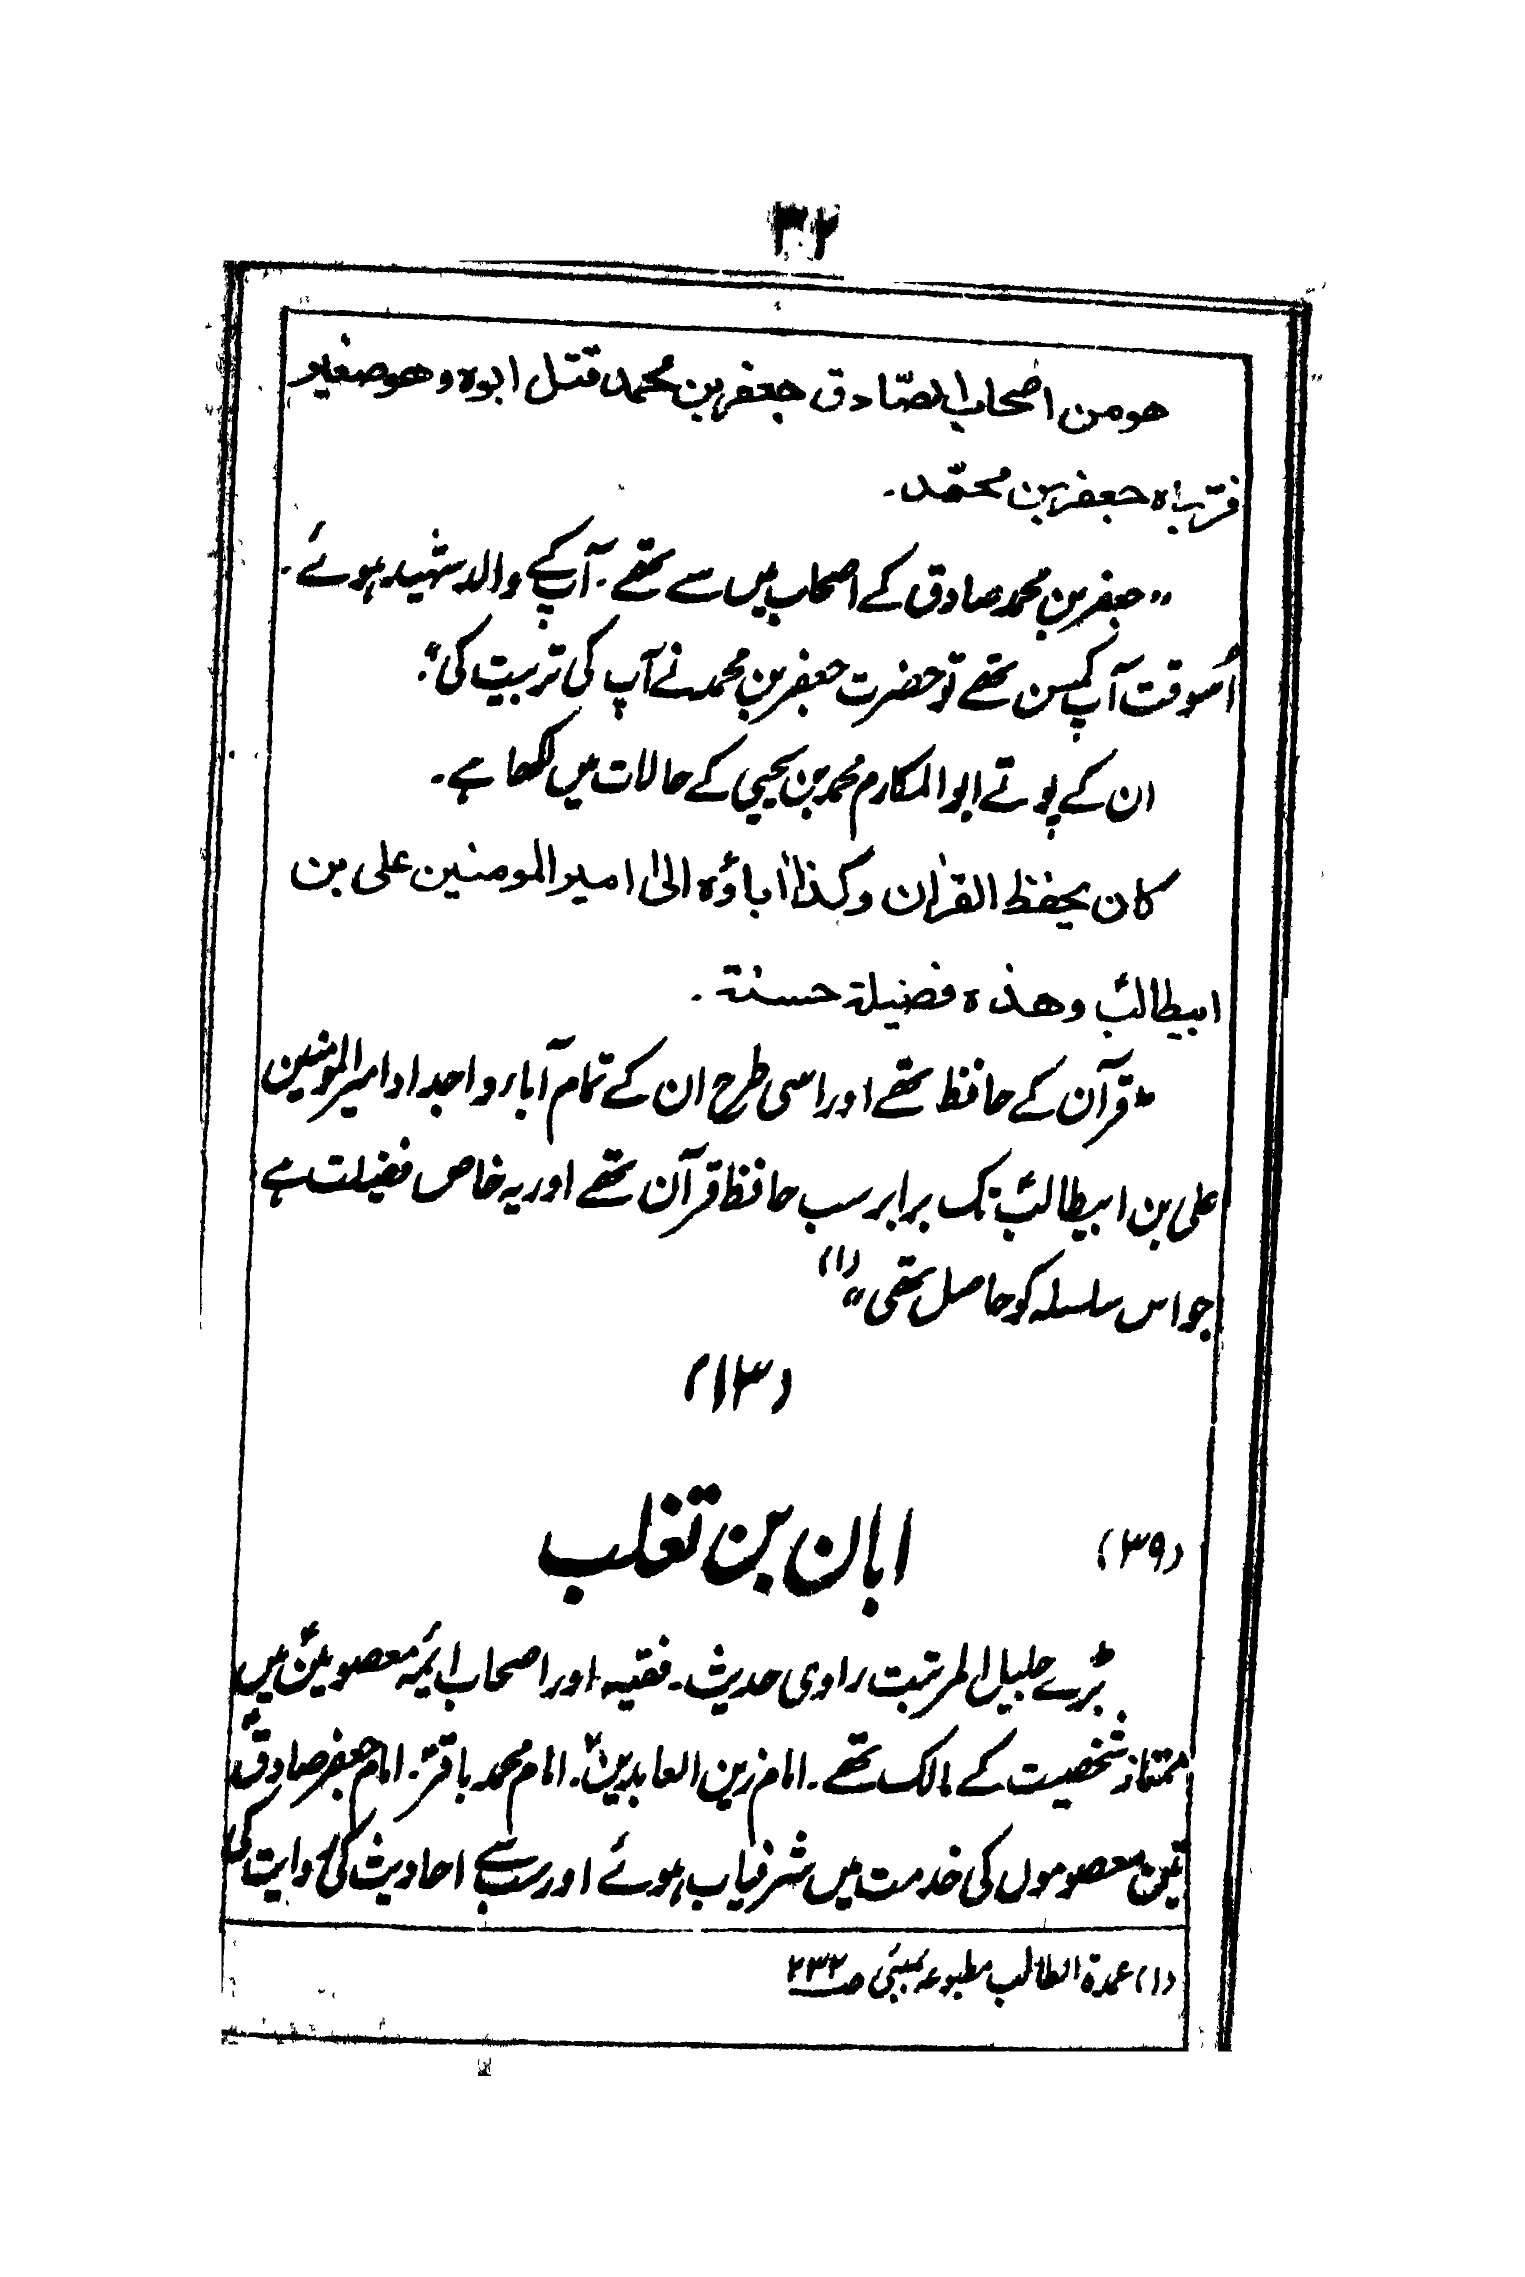 ۳۲
هو من اصحاب الصّادق جعفر بن محمد قتل ابوه وهو صغير
فربّاه جعفر بن محمّد۔
”جعفر بن محمد صادق کے اصحاب میں سے تھے۔ آپ کے والد شہید ہوئے۔
اُسوقت آپ کمسن تھے تو حضرت جعفر بن محمد نے آپ کی تربیت کی“۔
ان کے پوتے ابوالمکارم محمد بن یحییٰ کے حالات میں لکھا ہے۔
كان يحفظ القرٰان وكذا اٰباؤه الىٰ امير المومنين على بن
ابيطالبؑ وهذه فضيلة حسنة۔
”قرآن کے حافظ تھے اور اسی طرح ان کے تمام آباء و اجداد امیر المومنین
علی بن ابیطالبؑ تک برابر سب حافظ قرآن تھے اور یہ خاص فضیلت ہے
جو اس سلسلہ کو حاصل تھی“ (۱)
(۱۳)
(۳۹) ابان بن تغلب
بڑے جلیل المرتبت راوی حدیث۔ فقیہ اور اصحاب ائمہ معصومینؑ میں
ممتاز شخصیت کے مالک تھے۔ امام زین العابدینؑ۔ امام محمد باقرؑ۔ امام جعفر صادقؑ
تین معصوموں کی خدمت میں شرفیاب ہوئے اور سب سے احادیث کی روایت کی
(۱) عمدة الطالب مطبوعہ بمبئی صـ ۲۳۲